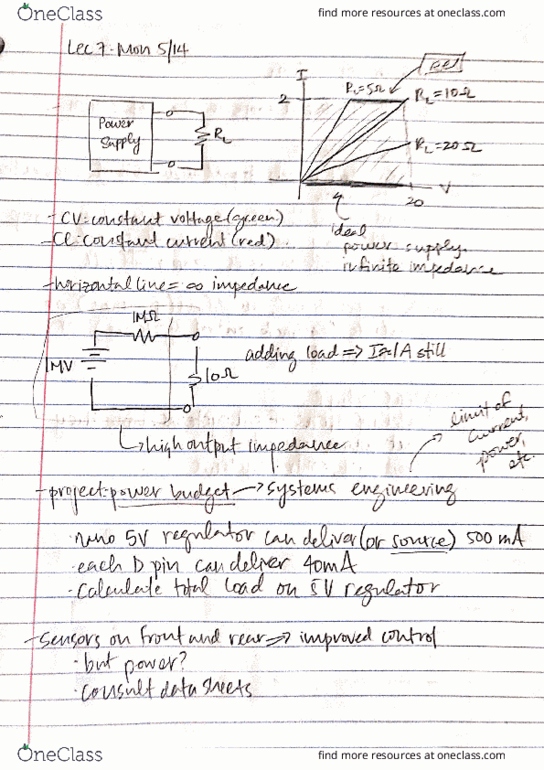 OneClass
find more resources at oneclass.com
Lec 7. Mon 5/14
Power
Supply
RL
I
2
RL=5Ω
red
RL=10Ω
RL=20Ω
V
20
ideal
power supply
infinite impedance
- CV: constant voltage (green)
- CC: constant current (red)
- horizontal line = ∞ impedance
1MΩ
1MV
10Ω
adding load => I≈1A still
high output impedance
limit of
current,
power,
etc.
- project: power budget -> systems engineering
· nano 5V regulator can deliver (or source) 500 mA
· each D pin can deliver 40mA
· calculate total load on 5V regulator
- sensors on front and rear => improved control
· but power?
· consult data sheets
OneClass
find more resources at oneclass.com